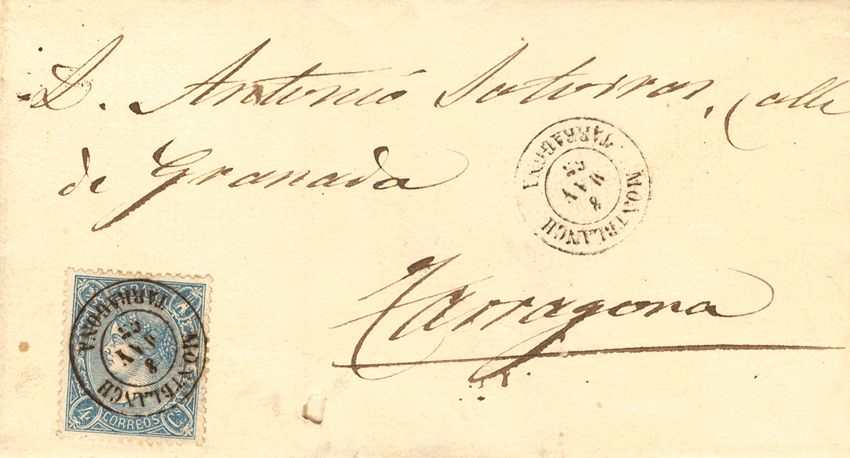 D. Antonio Satorras, Calle
de Granada
MONTBLANCH
8
MAY
TARRAGONA
Tarragona
4
CORREOS
4 Cs
MONTBLANCH
8
MAY
65
TARRAGONA